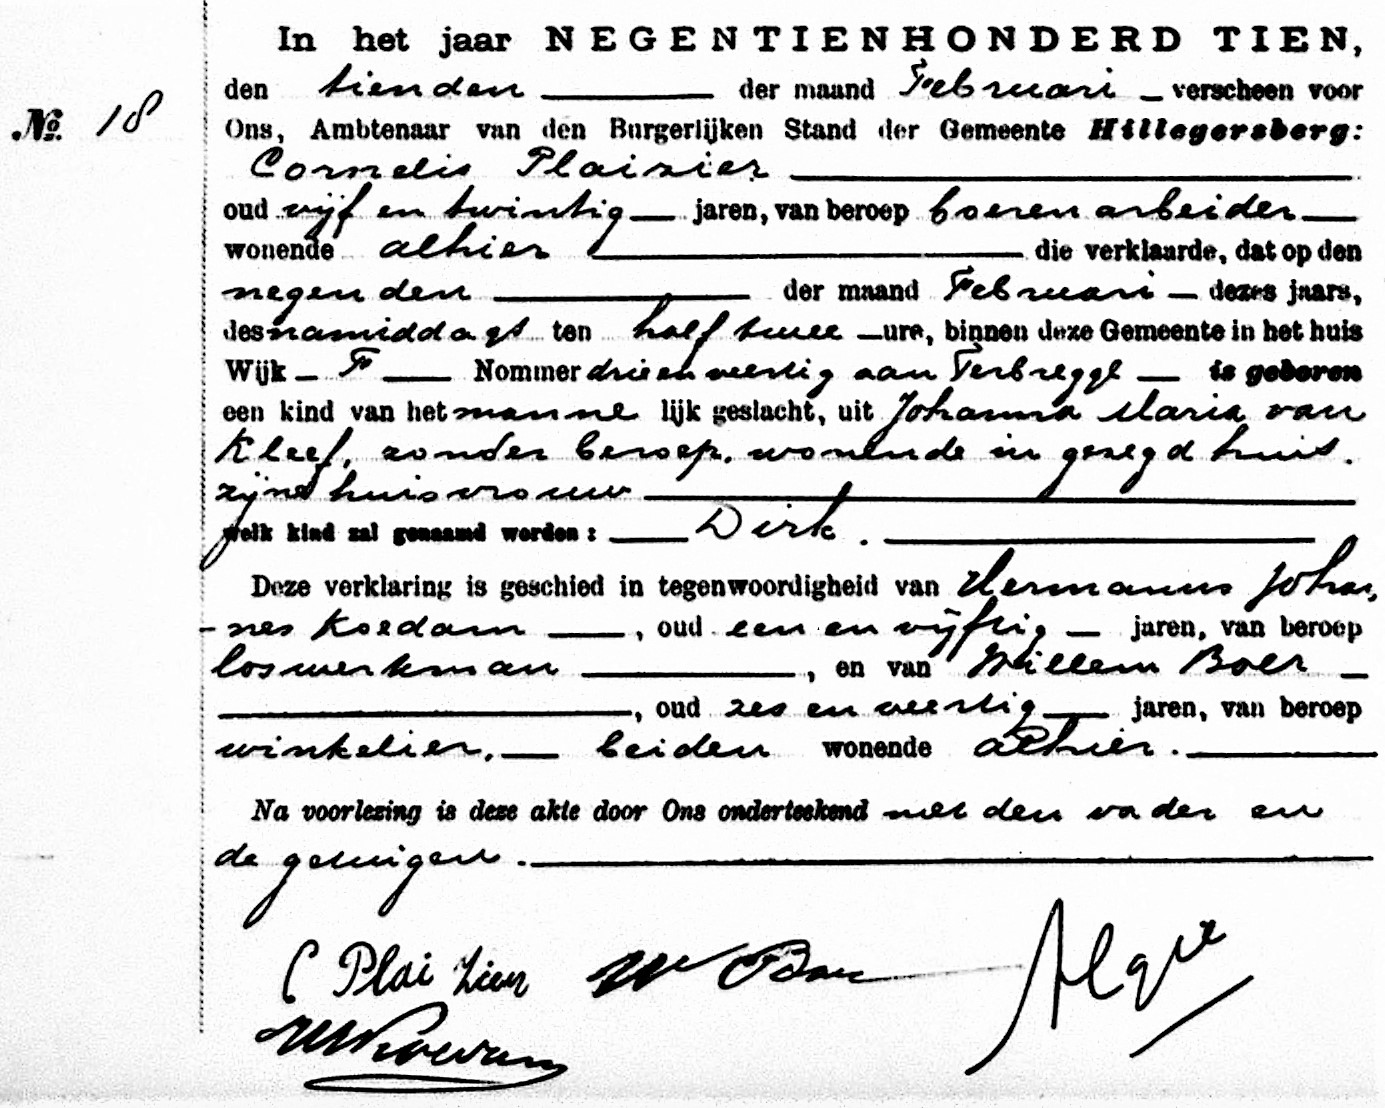 In het jaar NEGENTIENHONDERD TIEN,
den tienden der maand Februari verscheen voor
No. 18
Ons, Ambtenaar van den Burgerlijken Stand der Gemeente Hillegersberg:
Cornelis Plaizier
oud vijf en twintig jaren, van beroep boerenarbeider
wonende alhier die verklaarde, dat op den
negenden der maand Februari dezes jaars,
des namiddags ten half twee ure, binnen deze Gemeente in het huis
Wijk F Nommer drie en veertig aan Terbregge is geboren
een kind van het mannelijk geslacht, uit Johanna Maria van
Kleef, zonder beroep, wonende in gezegd huis.
zijne huisvrouw
welk kind zal genaamd worden: Dirk.
Deze verklaring is geschied in tegenwoordigheid van Hermanus Johan,
nes Koedam, oud een en vijftig jaren, van beroep
loswerkman, en van Willem Boer
, oud zes en veertig jaren, van beroep
winkelier, beiden wonende alhier.
Na voorlezing is deze akte door Ons onderteekend met den vader en
de getuigen.
C Plaizier W Boer
Koedam